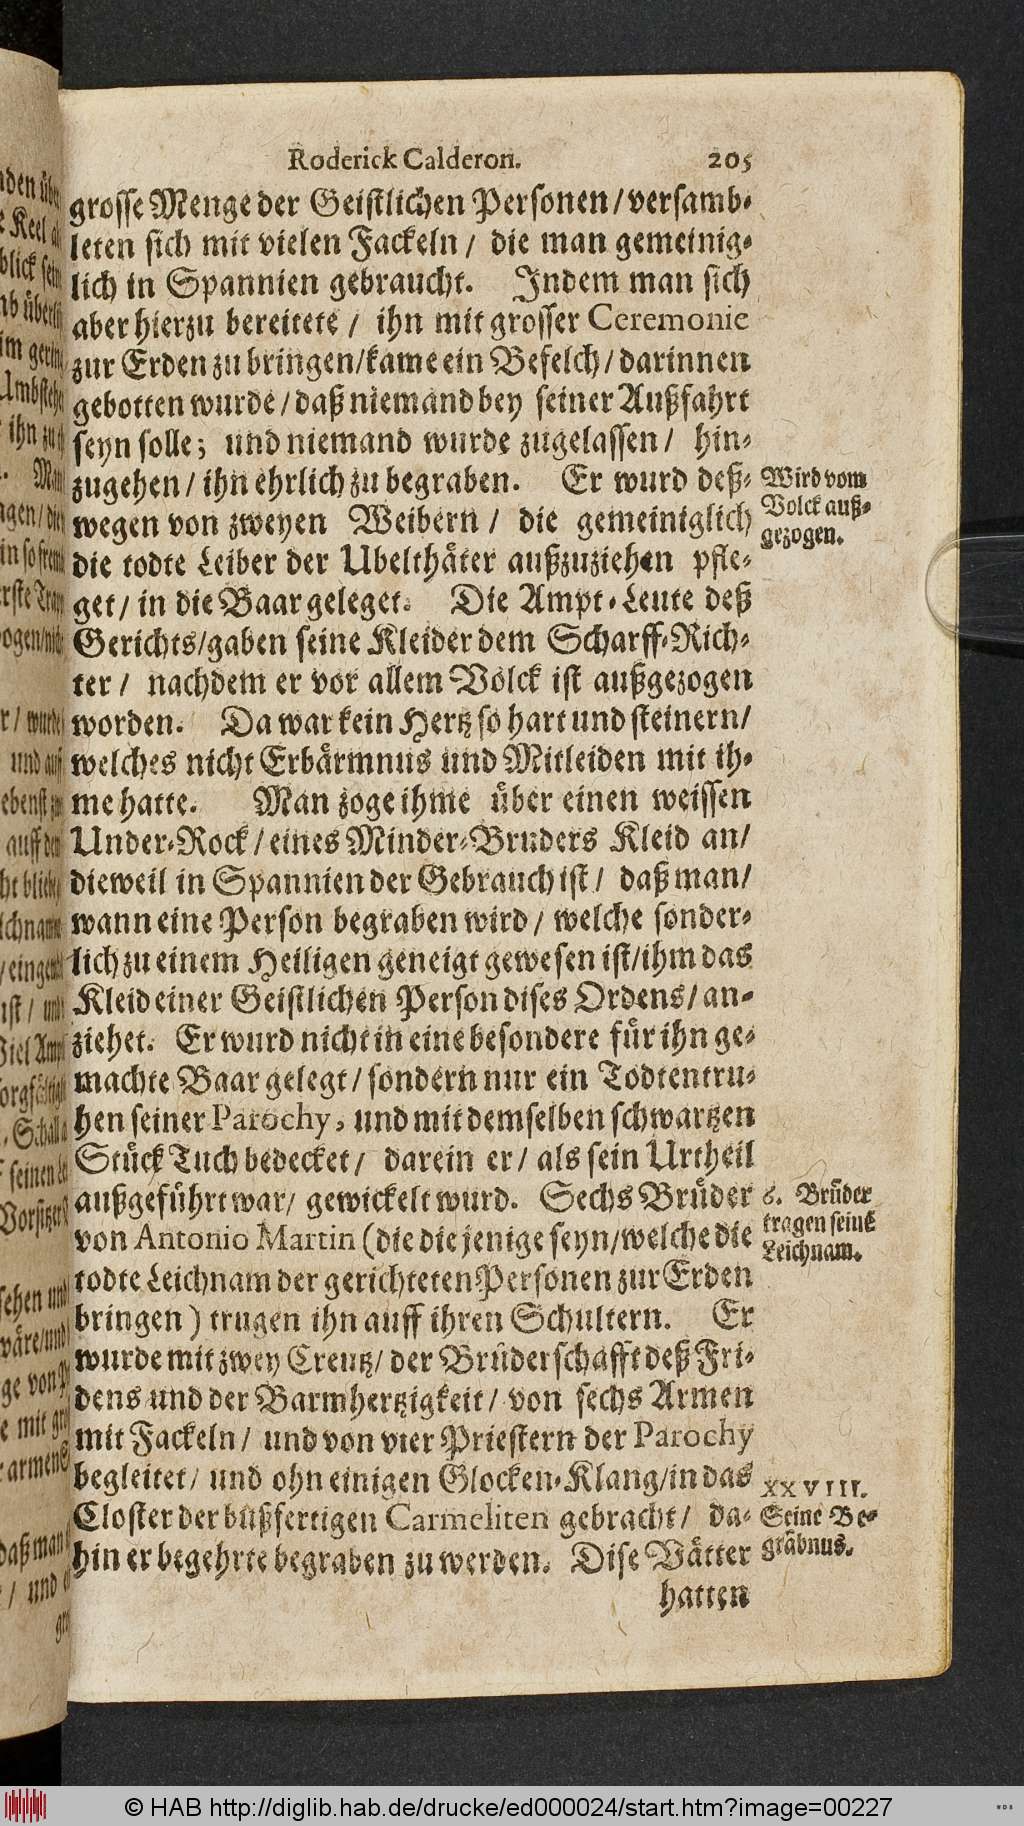 Roderick Calderon. 205
grosse Menge der Geistlichen Personen/ versamb-
leten sich mit vielen Fackeln/ die man gemeinig-
lich in Spannien gebraucht. Indem man sich
aber hierzu bereitete/ ihn mit grosser Ceremonie
zur Erden zu bringen/ kame ein Befelch/ darinnen
gebotten wurde/ daß niemand bey seiner Außfahrt
seyn solle; und niemand wurde zugelassen/ hin-
zugehen/ ihn ehrlich zu begraben. Er wurd deß-
wegen von zweyen Weibern/ die gemeiniglich
die todte Leiber der Ubelthäter außzuziehen pfle-
get/ in die Baar geleget. Die Ampt-Leute deß
Gerichts/ gaben seine Kleider dem Scharff-Rich-
ter/ nachdem er vor allem Volck ist außgezogen
worden. Da war kein Hertz so hart und steinern/
welches nicht Erbärmnus und Mitleiden mit ih-
me hatte. Man zoge ihme über einen weissen
Under-Rock/ eines Minder-Bruders Kleid an/
dieweil in Spannien der Gebrauch ist/ daß man/
wann eine Person begraben wird/ welche sonder-
lich zu einem Heiligen geneigt gewesen ist/ ihm das
Kleid einer Geistlichen Person dises Ordens/ an-
ziehet. Er wurd nicht in eine besondere für ihn ge-
machte Baar gelegt/ sondern nur ein Todtentru-
hen seiner Parochy, und mit demselben schwartzen
Stück Tuch bedecket/ darein er/ als sein Urtheil
außgeführt war/ gewickelt wurd. Sechs Brüder
von Antonio Martin (die die jenige seyn/ welche die
todte Leichnam der gerichteten Personen zur Erden
bringen) trugen ihn auff ihren Schultern. Er
wurde mit zwey Creutz/ der Brüderschafft deß Fri-
dens und der Barmhertzigkeit/ von sechs Armen
mit Fackeln/ und von vier Priestern der Parochy
begleitet/ und ohn einigen Glocken-Klang/ in das
Closter der bußfertigen Carmeliten gebracht/ da-
hin er begehrte begraben zu werden. Dise Vätter
hatten
Wird vom
Volck auß-
gezogen.
6. Brüder
tragen seine
Leichnam.
XXVIII.
Seine Be-
gräbnus.
© HAB http://diglib.hab.de/drucke/ed000024/start.htm?image=00227